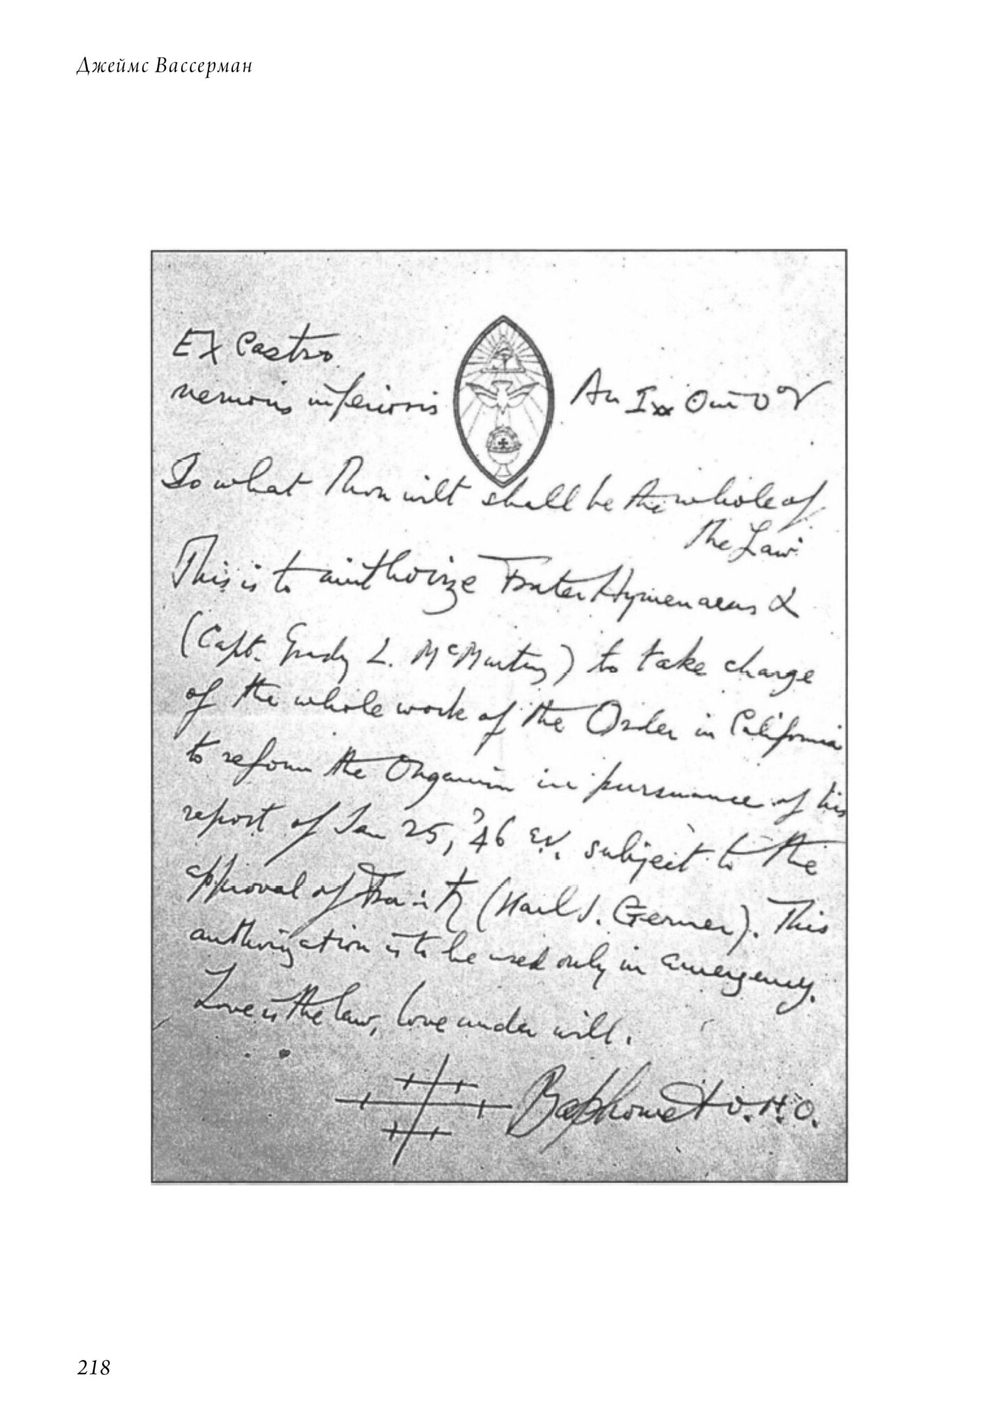 Джеймс Вассерман
Ex Castro
nemoris inferioris
An Ixx
Do what Thou wilt shall be the whole of
the Law.
This is to authorize Frater Hymenaeus α
(Capt. Grady L. McMurtry) to take charge
of the whole work of the Order in California
to reform the Organism in pursuance of his
report of Jan 25, '46 e.v. subject to the
approval of Fra ♄ (Karl J. Germer). This
authorization is to be used only in emergency.
Love is the law, love under will.
Baphomet O.H.O.
218